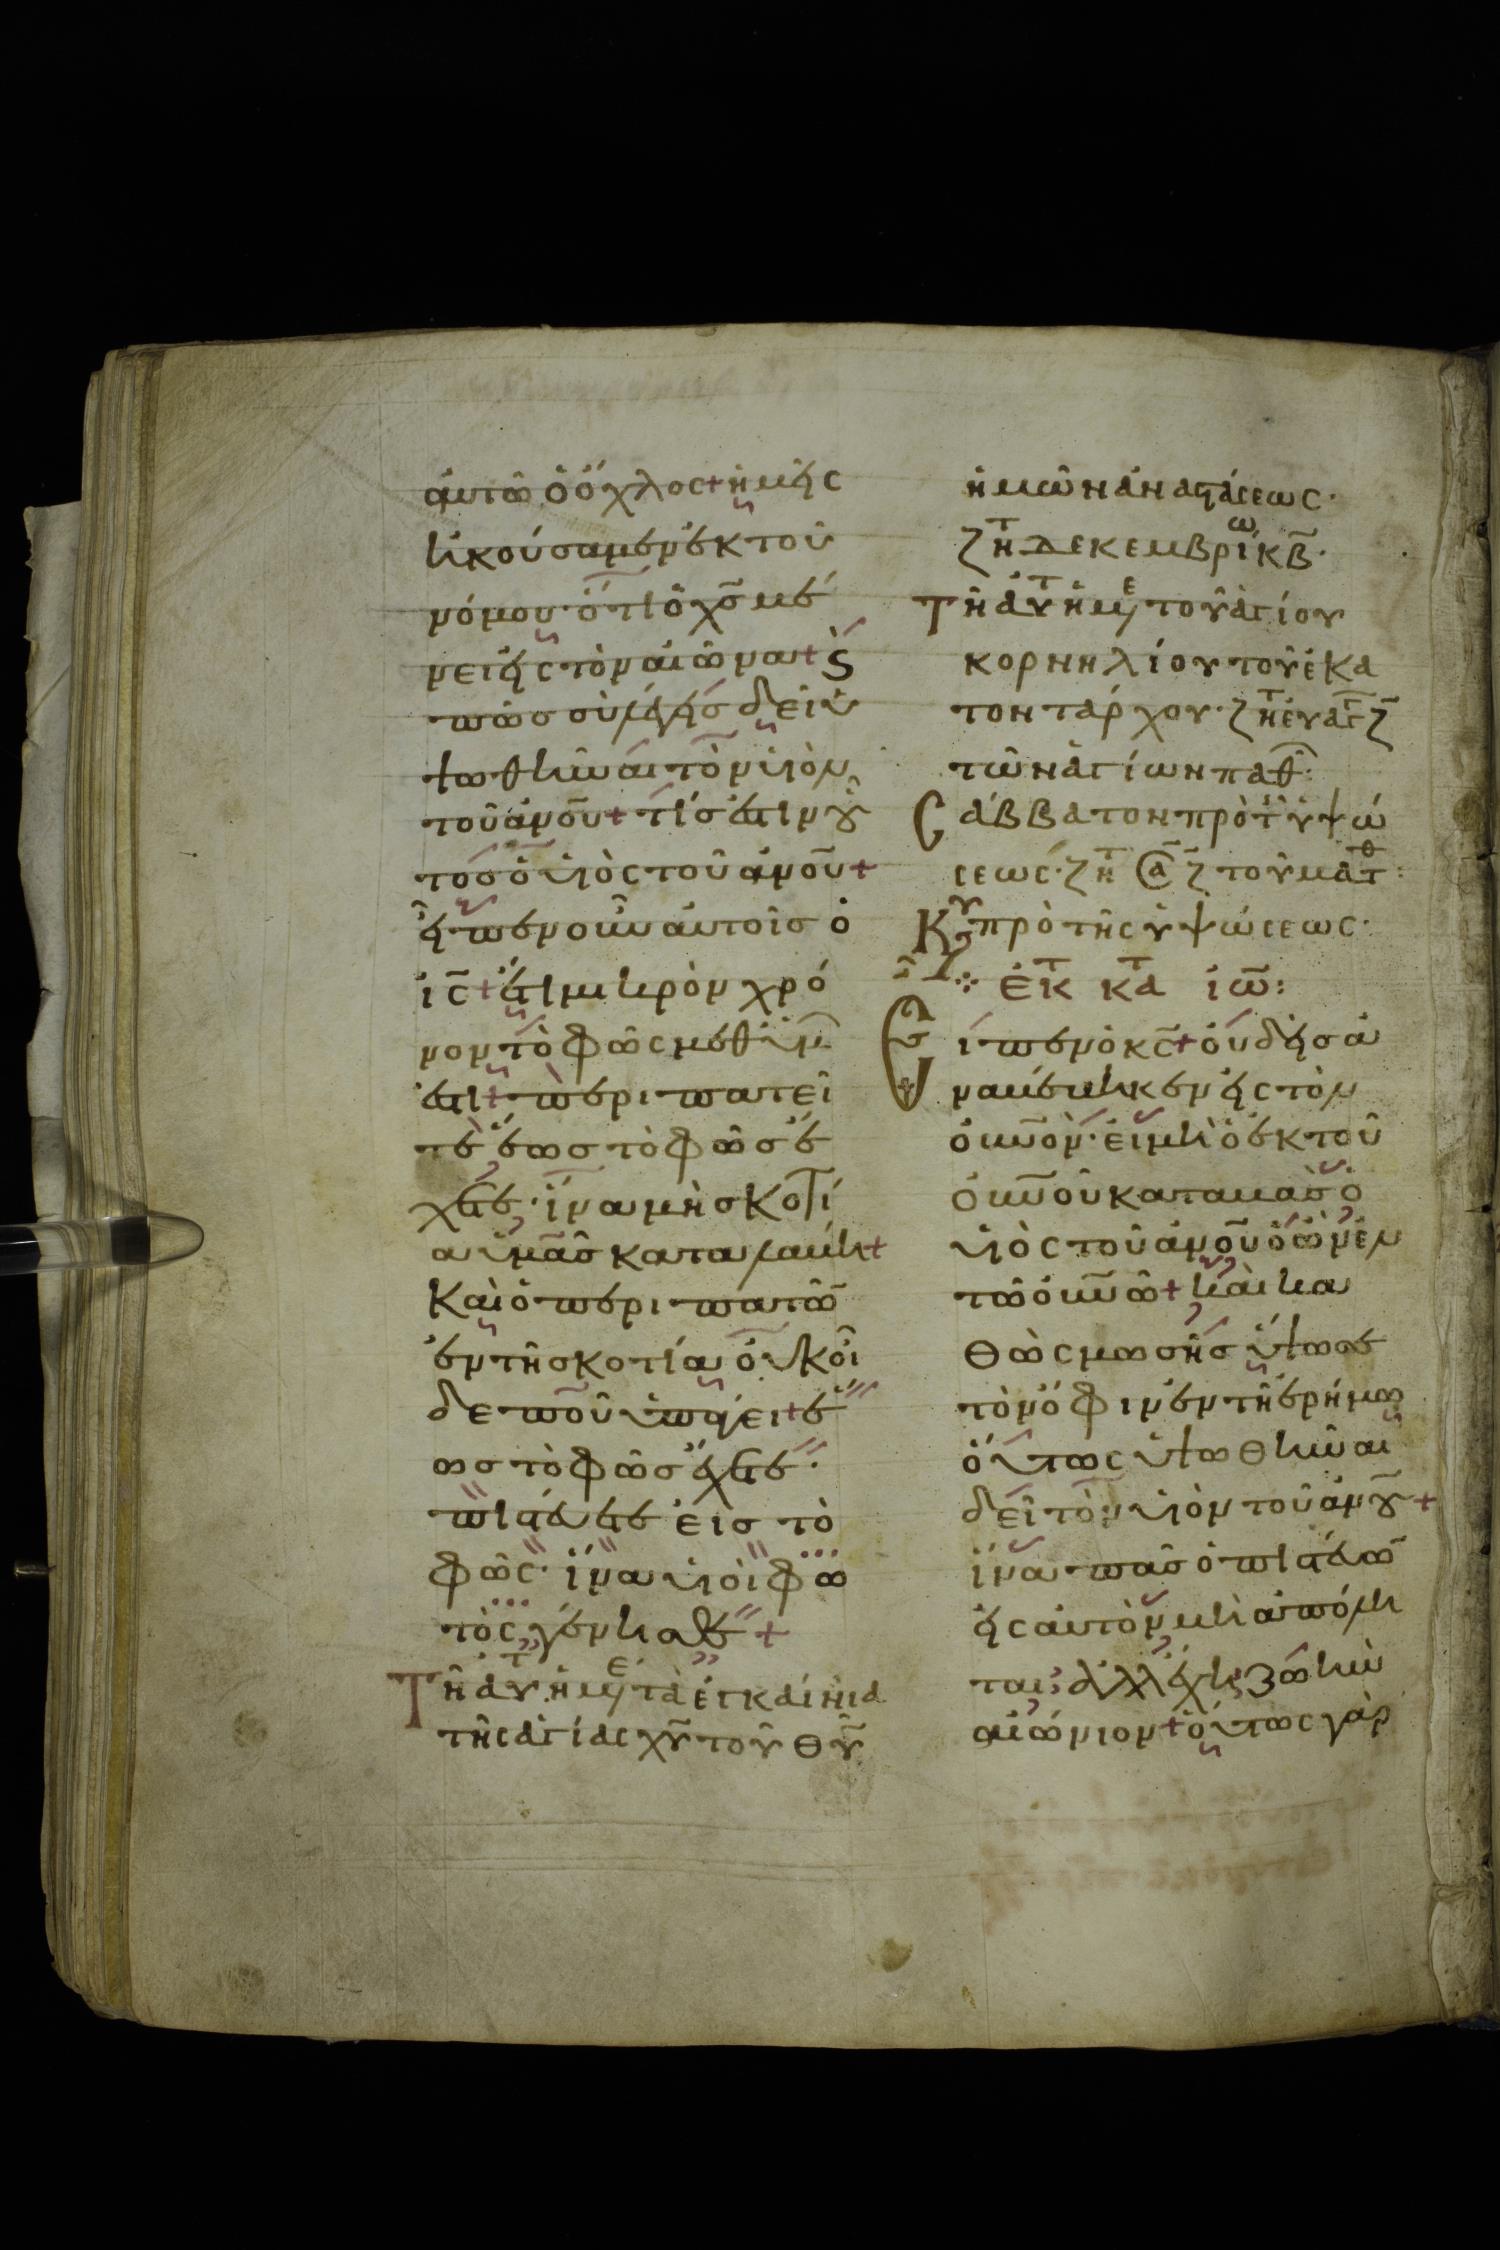 αὐτῶ ὁ ὄχλος + ἡμεῖς
ἠκούσαμεν ἐκ τοῦ
νόμου · ὅτι ὁ χ̅ς̅ μέ
νει εἰς τὸν αἰῶνα + ϗ
πῶς σὺ λέγεις δεῖ ὑ
ψωθῆναι τὸν υἱὸν
τοῦ ἀν̅ο̅υ̅ + τίς ἐστιν οὗ
τος ὁ υἱὸς τοῦ ἀν̅ο̅υ̅ +
εἶπεν οὖν αὐτοῖς ὁ
ι̅ς̅ + ἔτι μικρὸν χρό
νον τὸ φῶς μεθ ὑμῶν
ἐστι + περιπατεῖ
τε ἕως τὸ φῶς ἔ
χετε · ἵνα μὴ σκοτί
α ὑμᾶς καταλάβη +
Καὶ ὁ περιπατῶν
ἐν τῆ σκοτία οὐκ οἶ
δε ποῦ ὑπάγει + ἕ
ως τὸ φῶς ἔχετε ·
πιστεύετε εἰς τὸ
φῶς · ἵνα υἱοὶ φω
τὸς γένησθε +
Τῆ αὐτ ἡμε τὰ ἐγκαίνια
τῆς ἁγίας χ̅υ̅ τοῦ θ̅υ̅
ἡμῶν ἀναστάσεως ·
ζητ Δεκεμβρίω κβ ·
Τῆ αὐτ ἡμε τοῦ ἁγίου
κορνηλίου τοῦ ἑκα
τοντάρχου · ζητ εὐαγ ζ
τῶν ἁγίων παθ :
Σάββατον πρὸ τ ὑψώ
σεως · ζητ σα ζ τοῦ ματθ :
Κυ πρὸ τῆς ὑψώσεως ·
ἐκ τ κατ ἰω :
Εἶπεν ὁ κ̅ς̅ + οὐδεὶς ἀ
ναβέβηκεν εἰς τὸν
οὐν̅ο̅ν · εἰ μὴ ὁ ἐκ τοῦ
οὐν̅ο̅υ καταβὰς ὁ
υἱὸς τοῦ ἀν̅ο̅υ̅ ὁ ὢν ἐν
τῶ οὐν̅ω + καὶ κα
θὼς μωσῆς ὕψωσε
τὸν ὄφιν ἐν τῆ ἐρήμω
οὕτως ὑψωθῆναι
δεῖ τὸν υἱὸν τοῦ ἀν̅ο̅υ̅ +
ἵνα πᾶς ὁ πιστεύων
εἰς αὐτὸν μὴ ἀπόλη
ται · ἀλλ ἔχη ζωὴν
αἰώνιον + οὕτως γὰρ